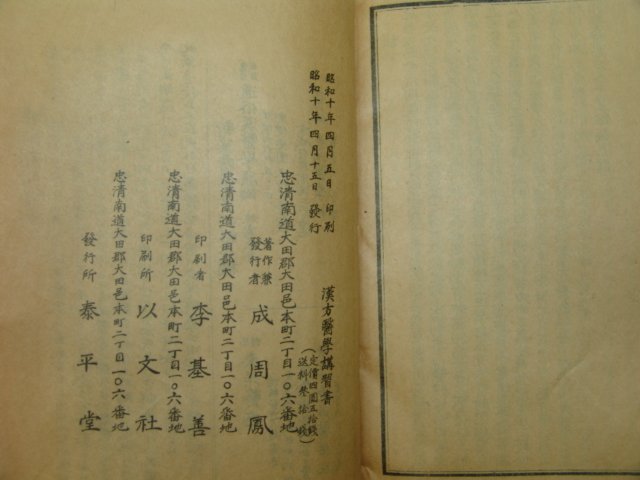 昭和十年四月五日 印刷
昭和十年四月十五日 發行
漢方醫學講習書
(定價四圓五拾錢
送料參拾錢)
忠清南道大田郡大田邑本町二丁目一〇六番地
著作兼
發行者 成周鳳
忠清南道大田郡大田邑本町二丁目一〇六番地
印刷者 李基善
忠清南道大田郡大田邑本町二丁目一〇六番地
印刷所 以文社
忠清南道大田郡大田邑本町二丁目一〇六番地
發行所 泰平堂